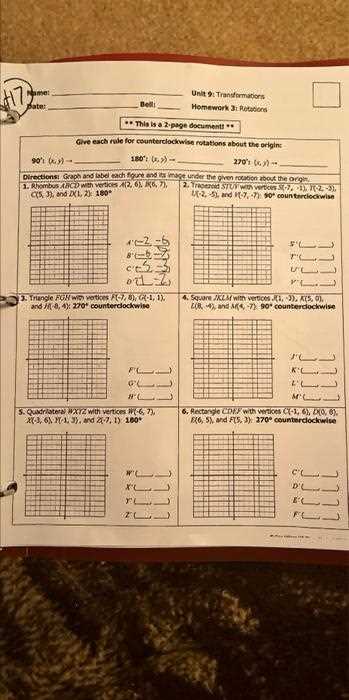 #17
Name:
Date:
Bell:
Unit 9: Transformations
Homework 3: Rotations
** This is a 2-page document! **
Give each rule for counterclockwise rotations about the origin:
90°: (x, y) →
180°: (x, y) →
270°: (x, y) →
Directions: Graph and label each figure and its image under the given rotation about the origin.
1. Rhombus ABCD with vertices A(2, 6), B(6, 7),
C(5, 3), and D(1, 2): 180°
A'(-2, -6)
B'(-6, -7)
C'(-5, -3)
D'(-1, -2)
2. Trapezoid STUV with vertices S(-7, -1), T(-2, -3),
U(-2, -5), and V(-7, -7): 90° counterclockwise
S'( , )
T'( , )
U'( , )
V'( , )
3. Triangle FGH with vertices F(-7, 8), G(-1, 1),
and H(-8, 4): 270° counterclockwise
F'( , )
G'( , )
H'( , )
4. Square JKLM with vertices J(1, -3), K(5, 0),
L(8, -4), and M(4, -7): 90° counterclockwise
J'( , )
K'( , )
L'( , )
M'( , )
5. Quadrilateral WXYZ with vertices W(-6, 7),
X(-3, 6), Y(-1, 3), and Z(-7, 1): 180°
W'( , )
X'( , )
Y'( , )
Z'( , )
6. Rectangle CDEF with vertices C(-1, 6), D(0, 8),
E(6, 5), and F(5, 3): 270° counterclockwise
C'( , )
D'( , )
E'( , )
F'( , )